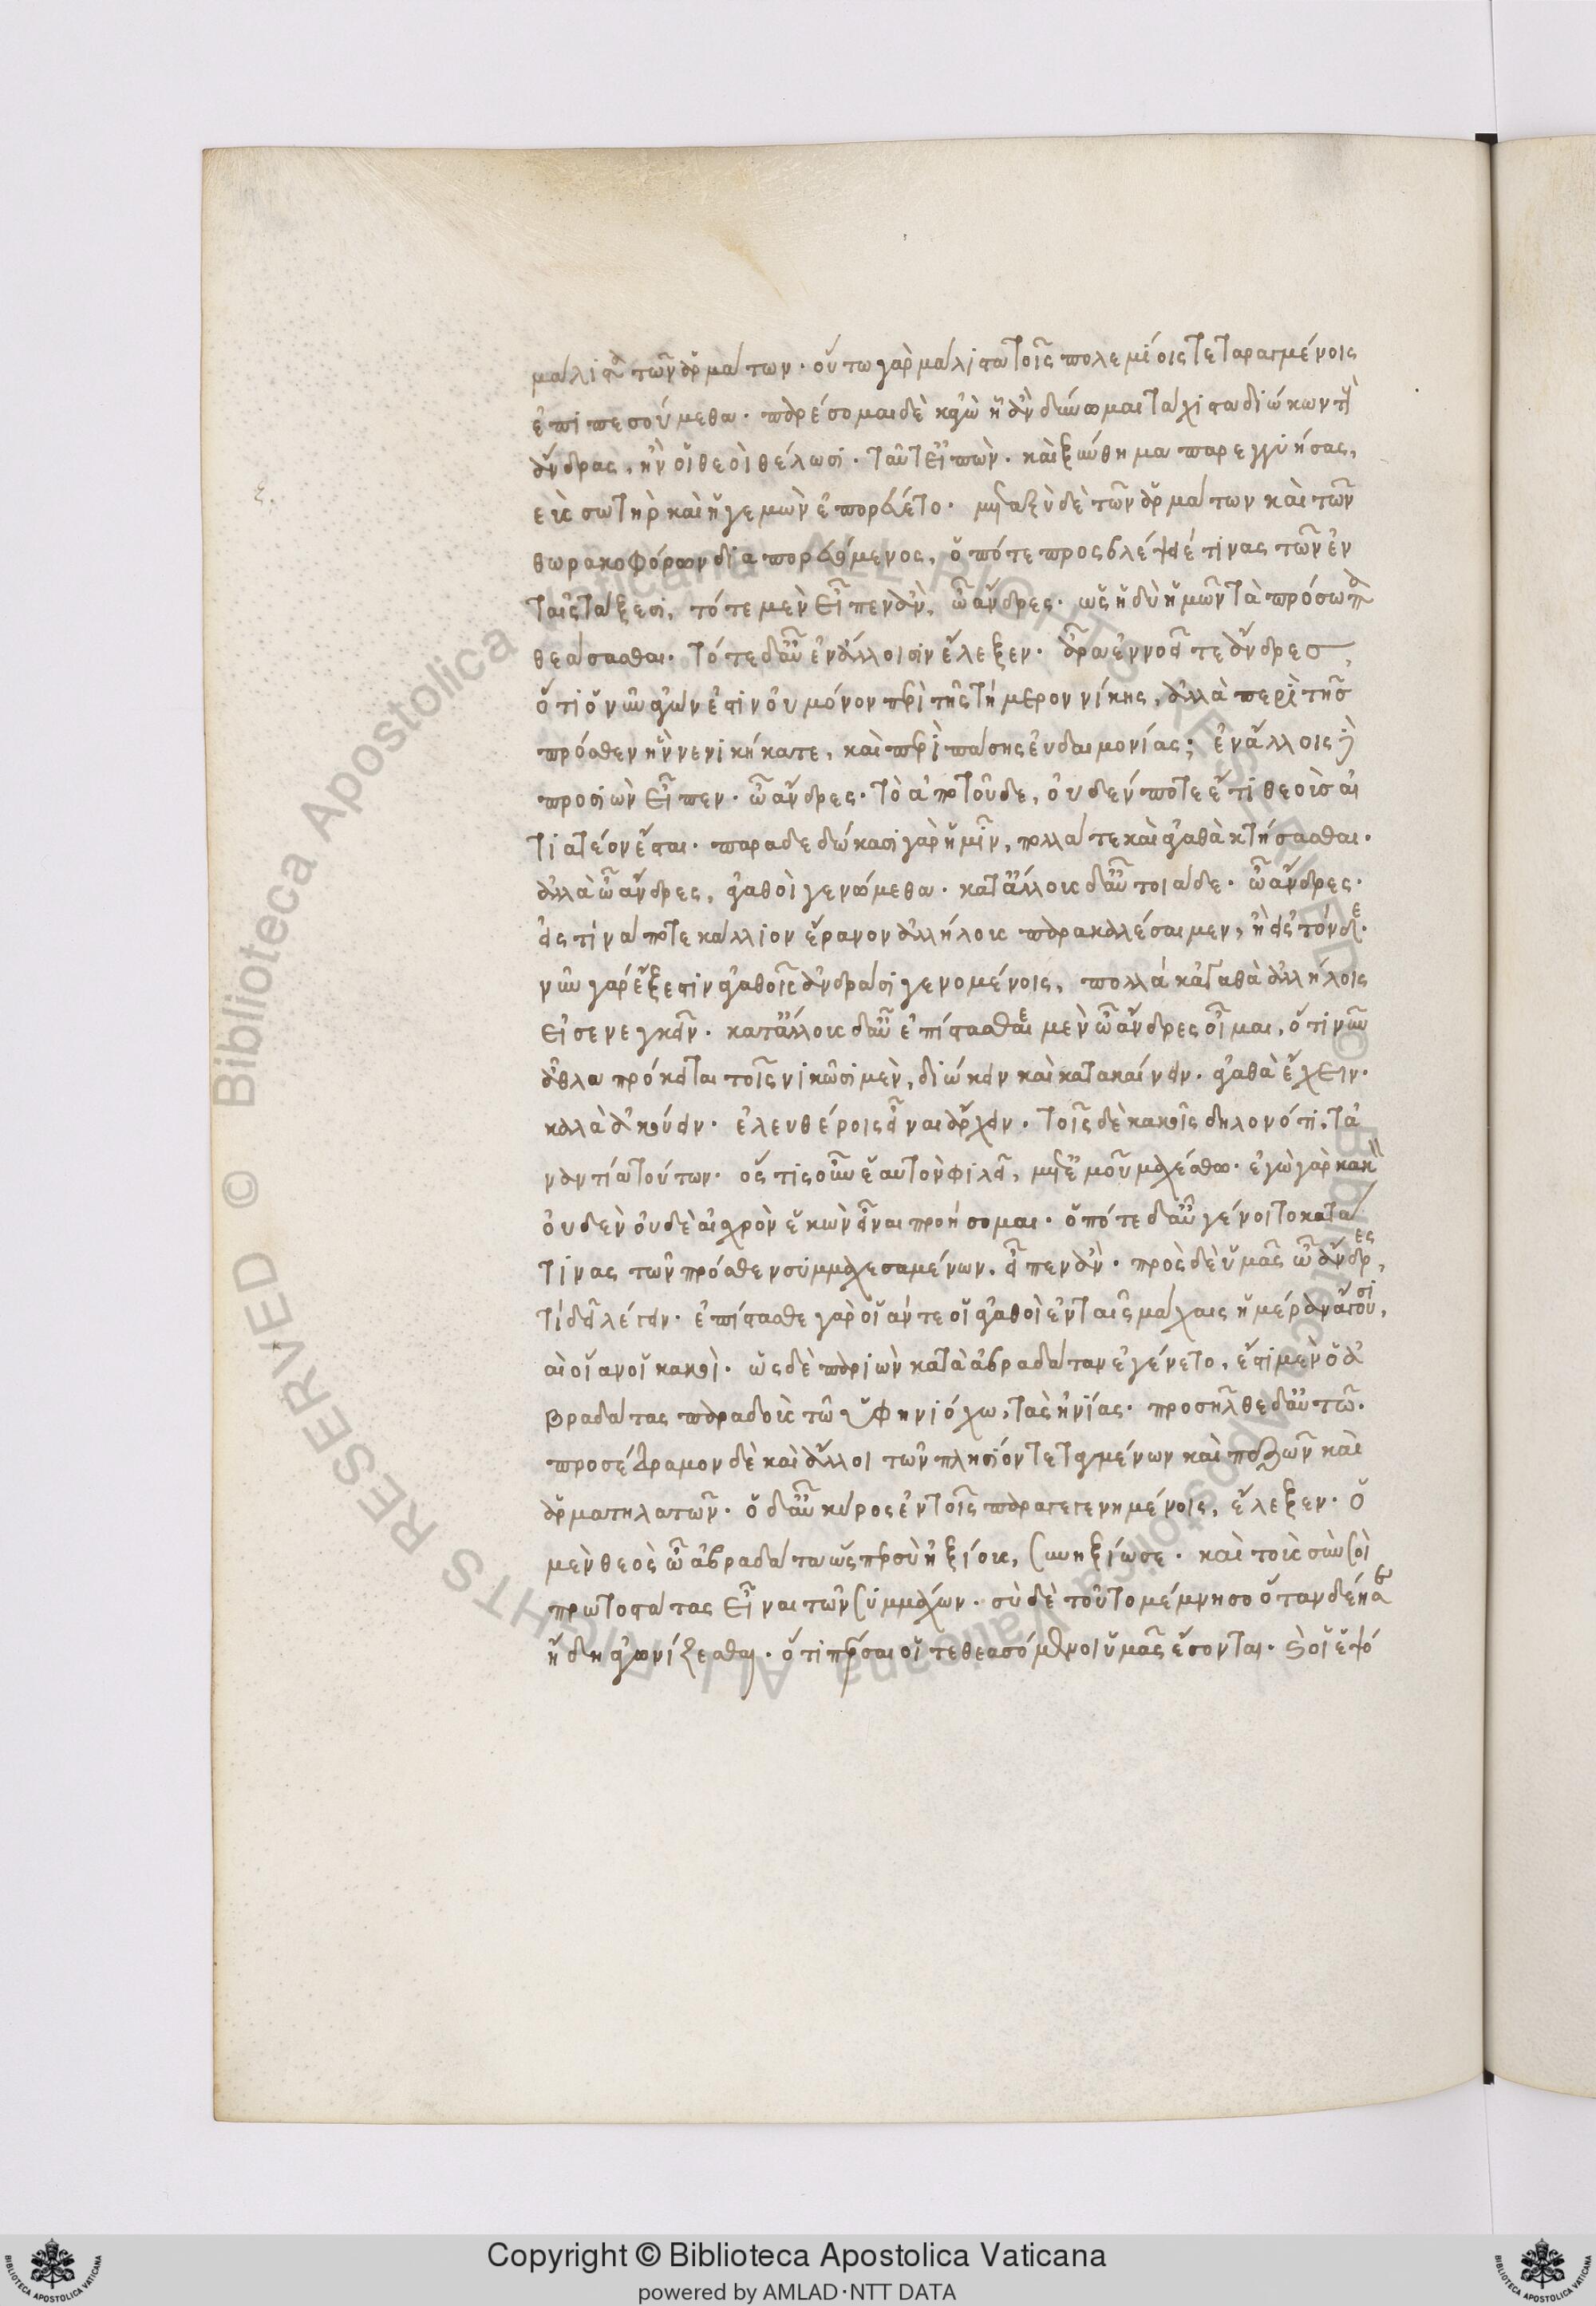 μάλιστα τῶν ἁρμάτων· οὕτω γὰρ μάλιστα τοῖς πολεμίοις τεταραγμένοις
ἐπιπεσούμεθα· παρέσομαι δὲ κἀγὼ ᾗ ἂν δύνωμαι τάχιστα διώκων τοὺς
ἄνδρας, ἢν οἱ θεοὶ θέλωσι· ταῦτ' εἰπὼν· καὶ ξύνθημα παρεγγυήσας,
εις σωτὴρ καὶ ἡγεμὼν ἐπορεύετο· μεταξὺ δὲ τῶν ἁρμάτων καὶ τῶν
θωρακοφόρων διαπορευόμενος, ὁπότε προσβλέψειέ τινας τῶν ἐν
ταῖς τάξεσι, τότε μὲν εἶπεν ἂν, ὦ ἄνδρες· ὡς ἡδὺ ἡμῶν τὰ πρόσωπα
θεάσασθαι· τότε δ' αὖ ἐν ἄλλοισιν ἔλεξεν· ἆρα ἐννοεῖτε ἄνδρες,
ὅτι ὁ νῦν ἀγών ἐστιν οὐ μόνον περὶ τῆς τήμερον νίκης, ἀλλὰ περὶ τῆς
πρόσθεν ἣν νενικήκατε, καὶ περὶ πάσης εὐδαιμονίας; ἐν ἄλλοις δὲ
προσιὼν εἶπεν· ὦ ἄνδρες· τὸ ἀπὸ τοῦδε, οὐδέν ποτε ἔτι θεοὺς αἰ
τιατέον ἔσται· παραδεδώκασι γὰρ ἡμῖν, πολλά τε κἀγαθὰ κτήσασθαι·
ἀλλὰ ὦ ἄνδρες, ἀγαθοὶ γενώμεθα· κατ' ἄλλους δ' αὖ τοιάδε· ὦ ἄνδρες·
εἰς τίνα ποτε κάλλιον ἔρανον ἀλλήλους παρακαλέσαιμεν, ἢ εἰς τόνδε·
νῦν γάρ ἔξεστιν ἀγαθοῖς ἀνδράσι γενομένοις, πολλά κἀγαθὰ ἀλλήλοις
εἰσενεγκεῖν· κατ' ἄλλους δ' αὖ ἐπίστασθε μὲν ὦ ἄνδρες οἶμαι, ὅτι νῦν
ἆθλα πρόκειται τοῖς νικῶσι μὲν, διώκειν καὶ κατακαίνειν· ἀγαθὰ ἔχειν·
καλὰ ἀκούειν· ἐλευθέροις εἶναι ἄρχειν· τοῖς δὲ κακοῖς δηλονότι, τἀ
ναντία τούτων· ὅστις οὖν ἑαυτὸν φιλεῖ, μετ' ἐμοῦ μαχέσθω· ἐγὼ γὰρ κακὸν
οὐδὲν οὐδὲ αἰσχρὸν ἑκὼν εἶναι προήσομαι· ὁπότε δ' αὖ γένοιτο κατά
τινας τῶν πρόσθεν συμμαχεσαμένων, εἶπεν ἂν· πρὸς δὲ ὑμᾶς ὦ ἄνδρες,
τί δεῖ λέγειν· ἐπίστασθε γὰρ οἵαν τε οἱ ἀγαθοὶ ἐν ταῖς μάχαις ἡμέραν ἄγουσι,
αὶ οἵαν οἱ κακοὶ· ὡς δὲ παριὼν κατὰ ἀβραδάταν ἐγένετο, ἔστι μὲν ὁ ἀ
βραδάτας παραδοὺς τῷ ὑφηνιόχῳ, τὰς ἡνίας· προσῆλθε δ' αὐτῷ·
προσέδραμον δὲ καὶ ἄλλοι τῶν πλησίον τεταγμένων καὶ πεζῶν καὶ
ἁρματηλατῶν· ὁ δ' αὖ κῦρος ἐν τοῖς παραγεγενημένοις, ἔλεξεν· ὁ
μὲν θεὸς ὦ ἀβραδάτα ὥσπερ σὺ ἠξίους, συνηξίωσε· καὶ τοὺς σὺν σοὶ
πρωτοστάτας εἶναι τῶν συμμάχων· σὺ δὲ τοῦτο μέμνησο ὅταν δεήσῃ
ἤδη ἀγωνίζεσθαι· ὅτι πέρσαι οἵ τε θεασόμενοι ὑμᾶς ἔσονται· καὶ οἱ ἑψό